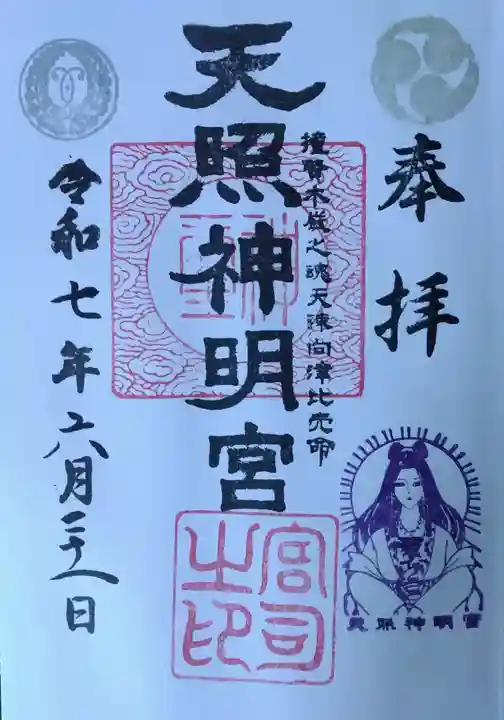 奉拝
撞賢木厳之魂天疎向津比売命
天照神明宮
宮司之印
令和七年六月二十一日
天照神明宮